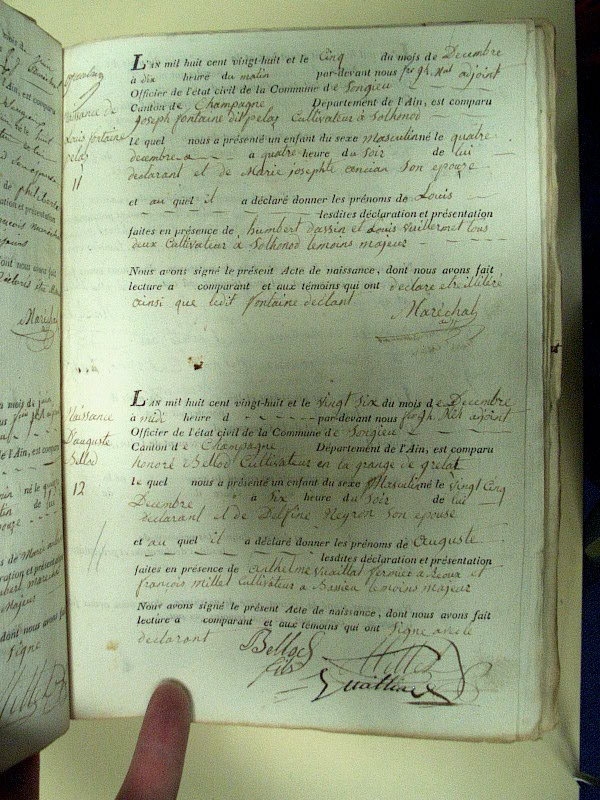 Naissance de
Louis fontaine
pelaz
11
L'an mil huit cent vingt-huit et le Cinq du mois de Decembre
à dix heure du matin par-devant nous adjoint
Officier de l'état civil de la Commune de Songieu
Canton de Champagne Département de l'Ain, est comparu
joseph fontaine dit pelaz Cultivateur a Sothonod
Le quel nous a présenté un enfant du sexe Masculin né le quatre
decembre a quatre heure du Soir de lui
déclarant et de Marie josephte ancian Son epouse
et au quel il a déclaré donner les prénoms de Louis
lesdites déclaration et présentation
faites en présence de humbert dassin et Louis Vuillermet tous
deux Cultivateur a Sothonod temoins majeur
Nous avons signé le présent Acte de naissance, dont nous avons fait
lecture a comparant et aux témoins qui ont declare etre illitéré
ainsi que ledit fontaine declant
Maréchal
Naissance
D'auguste
Bellod
12
L'an mil huit cent vingt-huit et le vingt Six du mois de Decembre
à midi heure d par-devant nous adjoint
Officier de l'état civil de la Commune de Songieu
Canton de Champagne Département de l'Ain, est comparu
honoré Bellod Cultivateur en la grange de
Le quel nous a présenté un enfant du sexe Masculin né le vingt Cinq
Decembre à Six heure du Soir de lui
declarant et de Delfine Neyron Son epouse
et au quel il a déclaré donner les prénoms de auguste
lesdites déclaration et présentation
faites en présence de anthelme fermier a et
françois Millet Cultivateur a Bassieu temoins majeur
Nous avons signé le présent Acte de naissance, dont nous avons fait
lecture a comparant et aux témoins qui ont Signé avec le
declarant
Bellod
fils